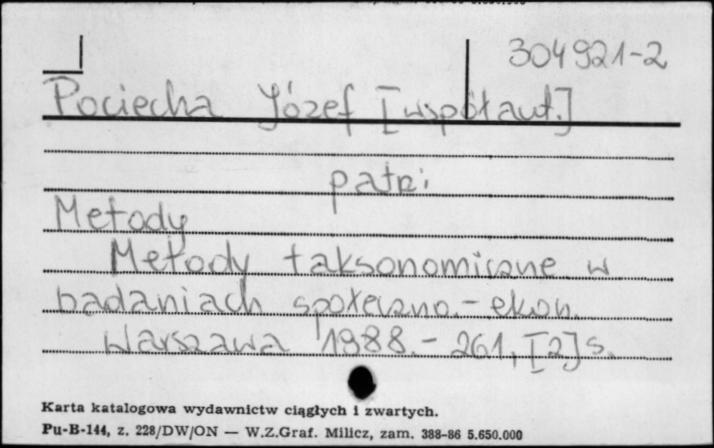 304921-2
Pociecha Józef [współaut.]
patrz:
Metody
Metody taksonomiczne w
badaniach społeczno.- ekon.
Warszawa 1988.- 261, [2] s.
Karta katalogowa wydawnictw ciągłych i zwartych.
Pu-B-144, z. 228/DW/ON — W.Z.Graf. Milicz, zam. 388-86 5.650.000